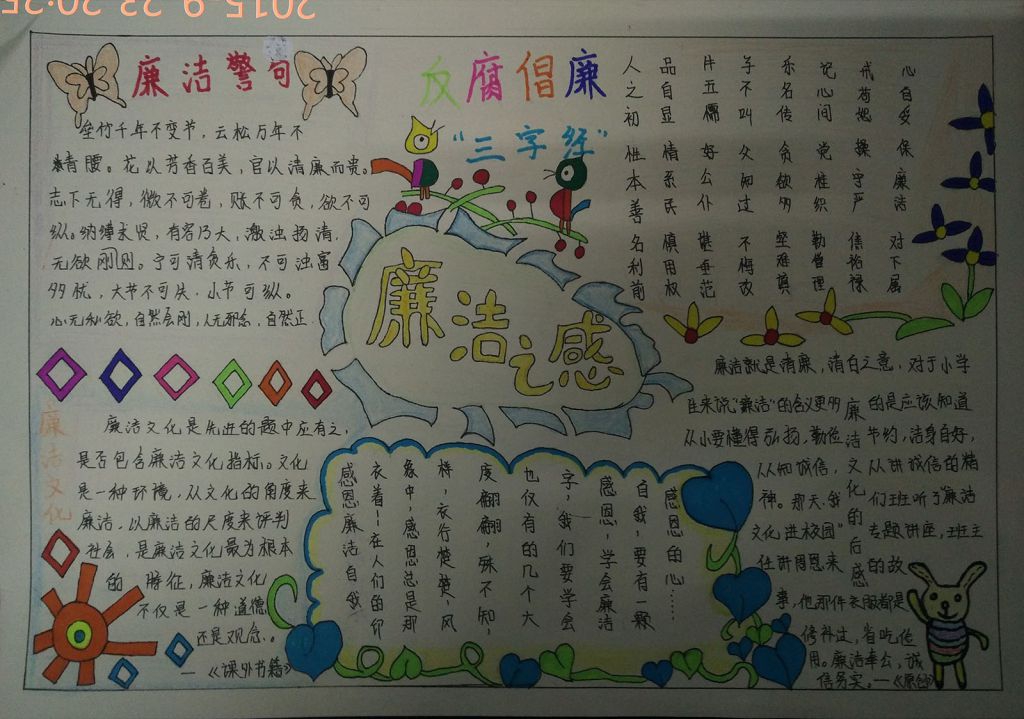 2015-9-23 20:25
廉洁警句
垒竹千年不变节，云松万年不
情腰。花以芳香百美，官以清廉而贵。
志下无得，微不可卷，账不可贪，欲不可
纵。纳博求贤，有容乃大，激浊扬清，
无欲刚则。宁可清贫乐，不可浊富
多忧，大节不可失，小节可纵。
心无私欲，自然会刚，人无邪念，自然正
反腐倡廉
“三字经”
人之初 性本善 名利前
品自显 情系民 慎用权
好公仆 堪垂范
子不叫 父知过 不悔改
乐名传 贪欲多 坚难填
记心间 党组织 勤管理
操守严
保廉洁 对下属
廉洁之感
廉洁文化
廉洁文化是先进的题中应有之，
是否包含廉洁文化指标。文化
是一种环境，从文化的角度来
廉洁，以廉洁的尺度来评判
社会，是廉洁文化最为根本
的 特征，廉洁文化
不仅是一种道德
还是观念。
—《课外书籍》
感恩廉洁自我
衣着！在人们的印
象中，感恩总是那
样，衣行楚楚，风
度翩翩，殊不知，
也仅有的几个大
字，我们要学会
感恩，学会廉洁
自我，要有一颗
感恩的心……
廉洁文化的后感
廉洁就是清廉，清白之意，对于小学
生来说“廉洁”的含义更多的是应该知道
从小要懂得弘扬，勤俭节约，洁身自好，
从如诚信，从讲诚信的精
神。那天，我们班听了廉洁
文化进校园专题讲座，班主
任讲周恩来的故
事，他那件衣服都是
修补过，省吃俭
用。廉洁奉公，诚
信务实。—《原创》